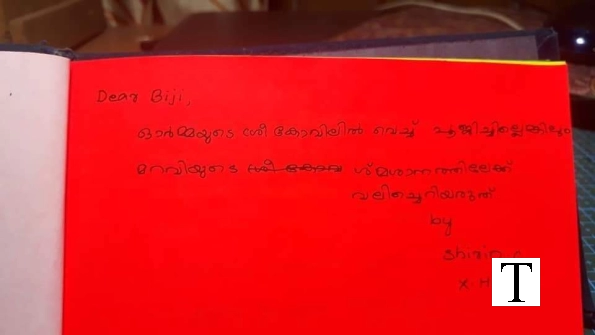 Dear Biji,
ഓർമ്മയുടെ ശ്രീ കോവിലിൽ വെച്ച് പൂജിച്ചില്ലെങ്കിലും
മറവിയുടെ ശ്മശാനത്തിലേക്ക്
വലിച്ചെറിയരുത്
by
Shirin
X. H
T